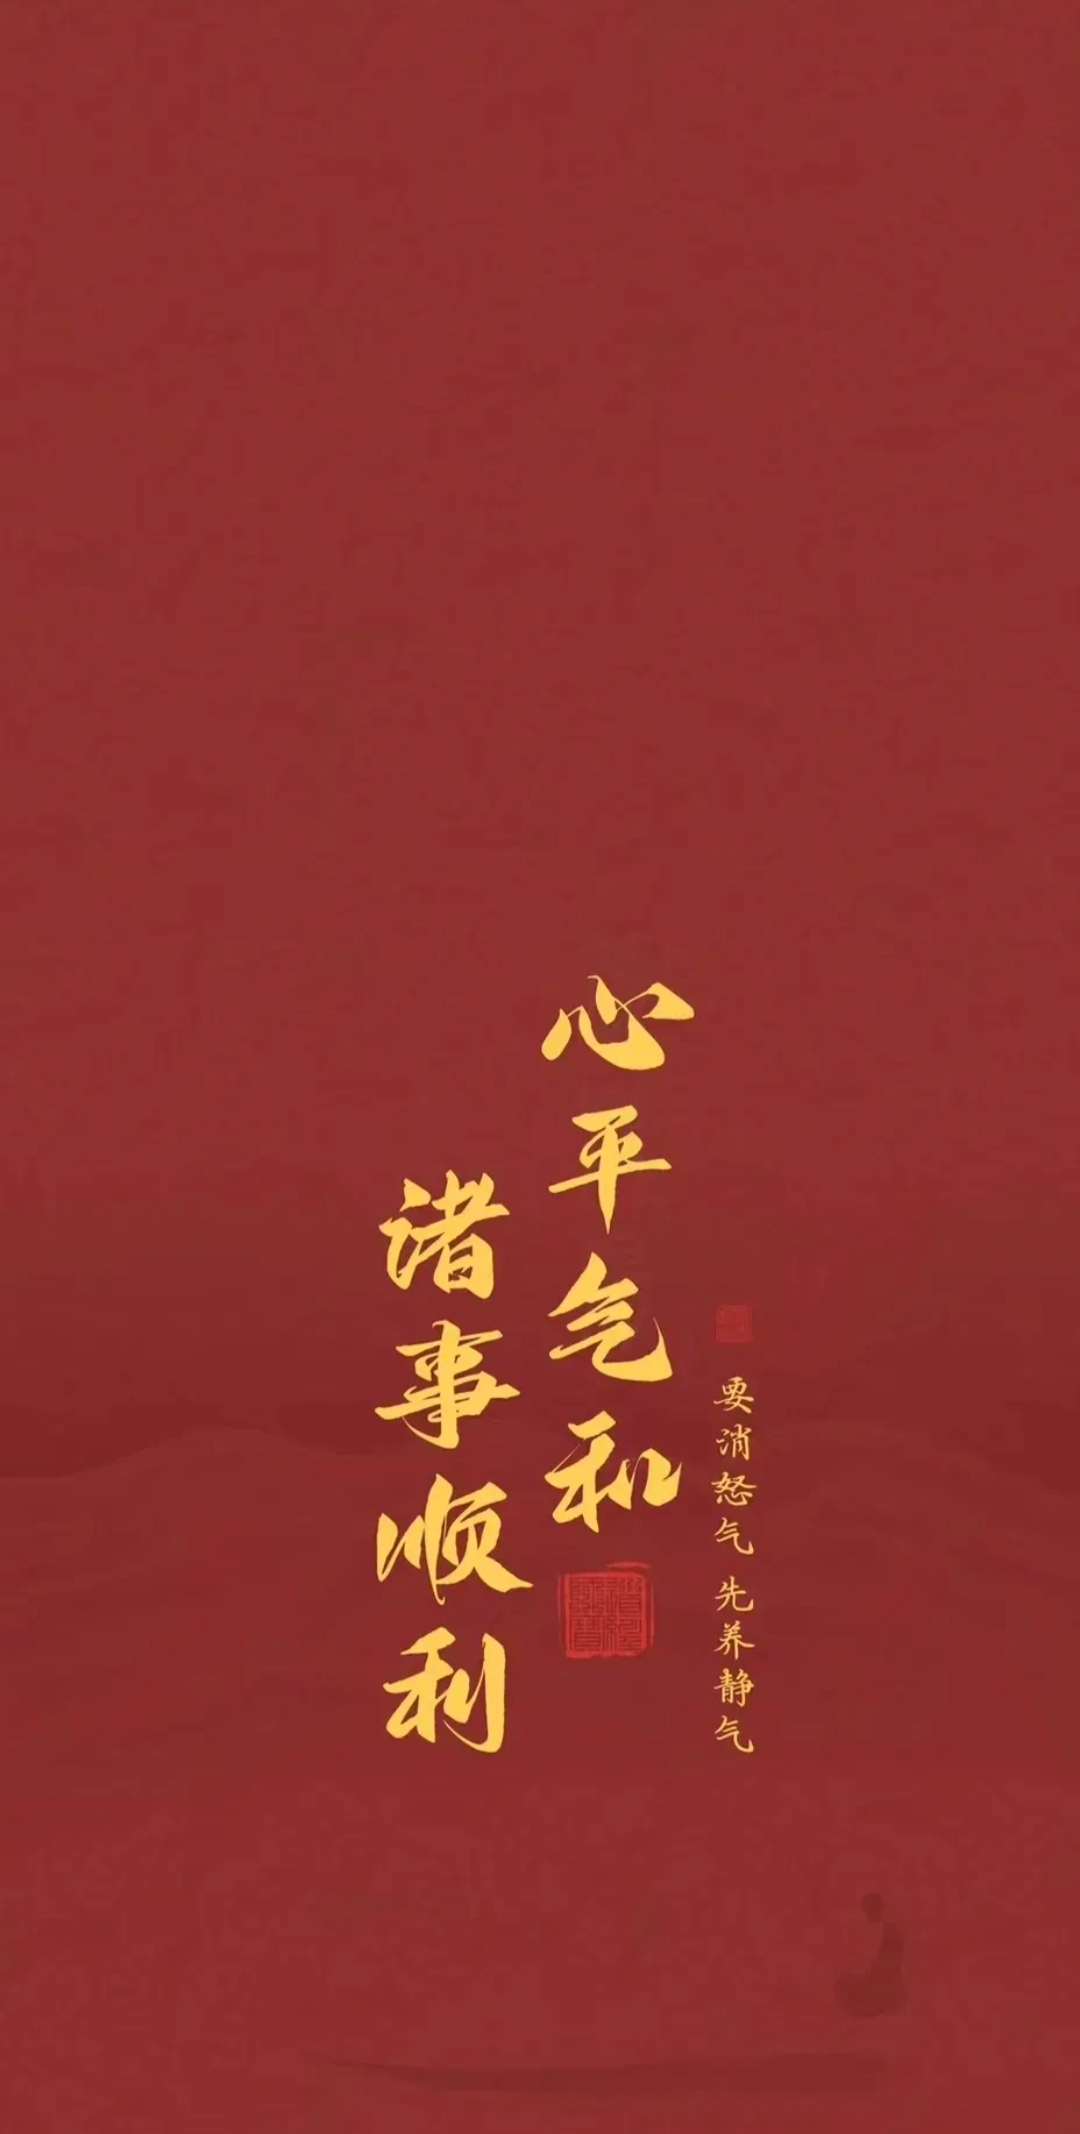 要消怒气 先养静气
心平气和
诸事顺利